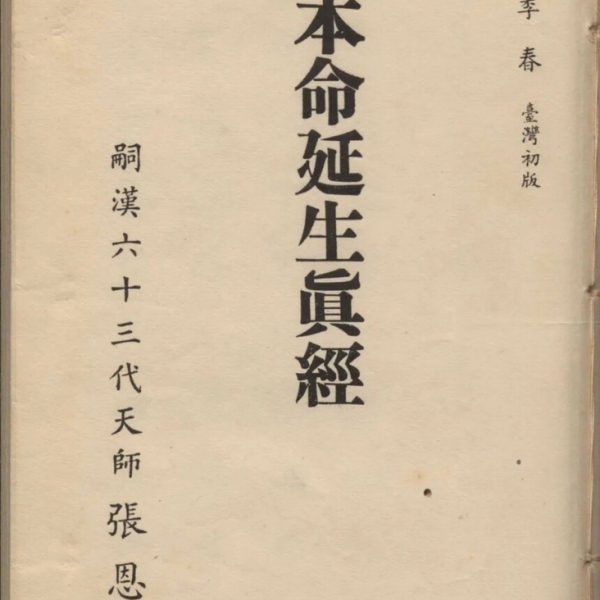 季春 臺灣初版
本命延生眞經
嗣漢六十三代天師張恩